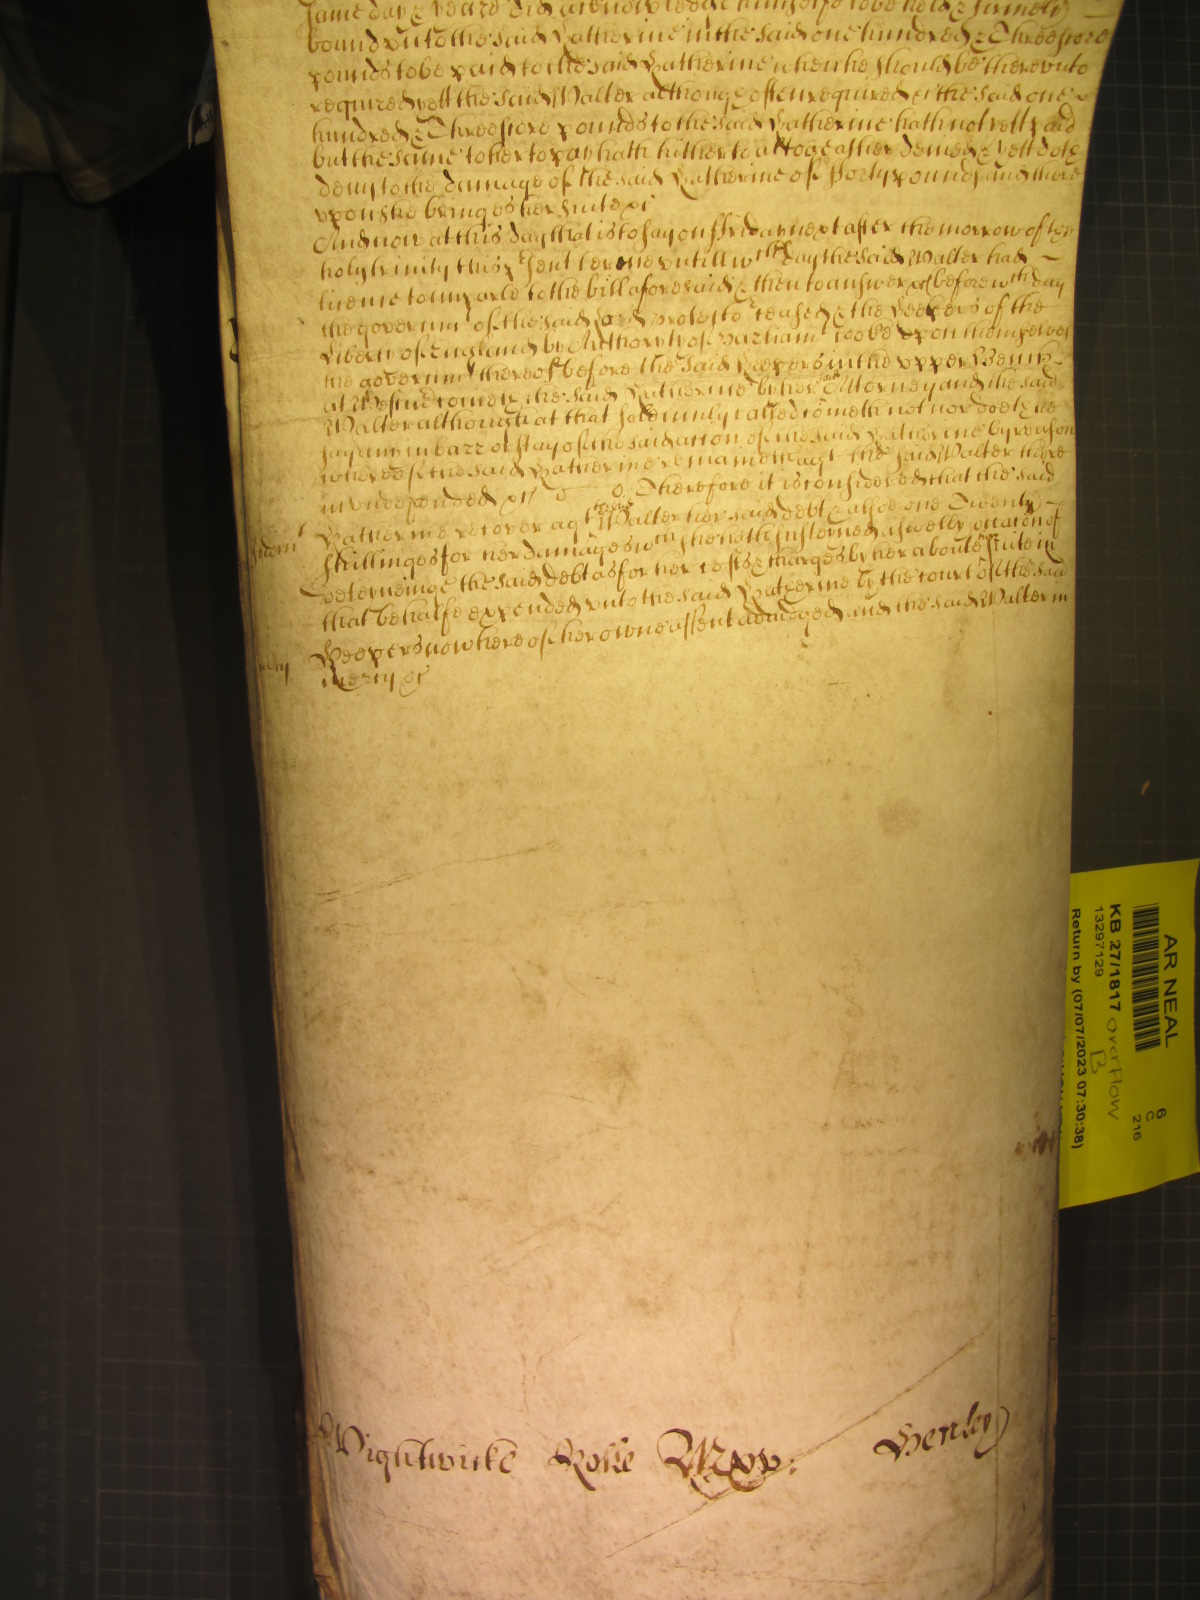 same day & yeare did acknowledge himselfe to be held & firmely
bound unto the said Katherine in the said one hundred & Threescore
pounds to be paid to the said Katherine when he should be thereunto
required yett the said Walter although often required the said one
hundred & Threescore pounds to the said Katherine hath not yett paid
but the same to her to pay hath hitherto altogeather denied & yett doth
deny to the damage of the said Katherine of fforty pounds and there
upon she bringes her suite &c
And now at this day that is to say on ffriday next after the morrow of the
holy trinity this p'sent terme untill wch day the said Walter had
licence to imparle to the bill aforesaid & then to answer &c before wch day
the governmt of the said Lord protector ceased & the Keepers of the
Liberty of England by Authority of Parliamt tooke upon themselves
the governmt thereof before the said Keepers in the upper Bench
at Westm cometh the said Katherine by her said Attorney and the said
Walter although at that solemnly called cometh not nor doeth he
say any in barr or stay of the said action of the said Katherine by reason
whereof the said Katherine remaineth agt the said Walter there
in undefended &c Therefore it is considered that the said
Katherine recover agt the said Walter her said debt & alsoe one & Twenty
shillinges for her damages wch she hath susteined aswell by occasion of
deteineinge the said debt as for her costs & charges by her aboute suite in
that behalfe expended unto the said Katherine by the court of the said
Keepers now here of her owne assent adiudged and the said Walter in
mercy &c
Judmt
mercy
Wightwicke Rolle Mxxv: Henley
AR NEAL
6
C
216
KB 27/1817 overflow
B
13297129
Return by (07/07/2023 07:30:38)